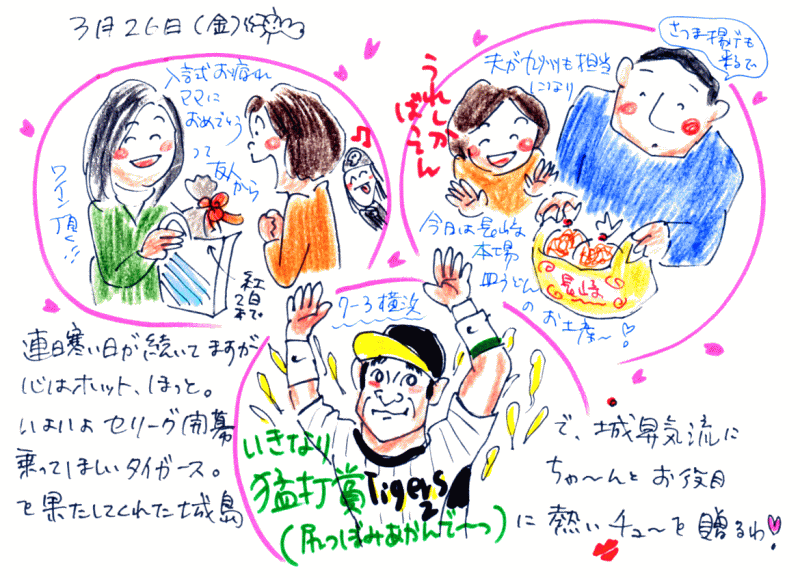 3月26日(金)
入試お疲れ
ママに
おめでとう
って
友人から
ワイン
頂く!!
紅白
2本
まで
うれしか
ばってん
夫が九州も担当
になり
さつま揚げも
来るで
今日は長崎
本場
皿うどん
の お土産〜!
長崎
7-3 横浜
連日寒い日が続いてますが
心はホット、ほっと。
いよいよ セリーグ開幕
で、城昇気流に
乗ってほしいタイガース。
ちゃ〜んと お役目
を果たしてくれた城島
に 熱い チュ〜を 贈るわ!
いきなり
猛打賞
Tigers
2
(尻つぼみあかんで〜っ)